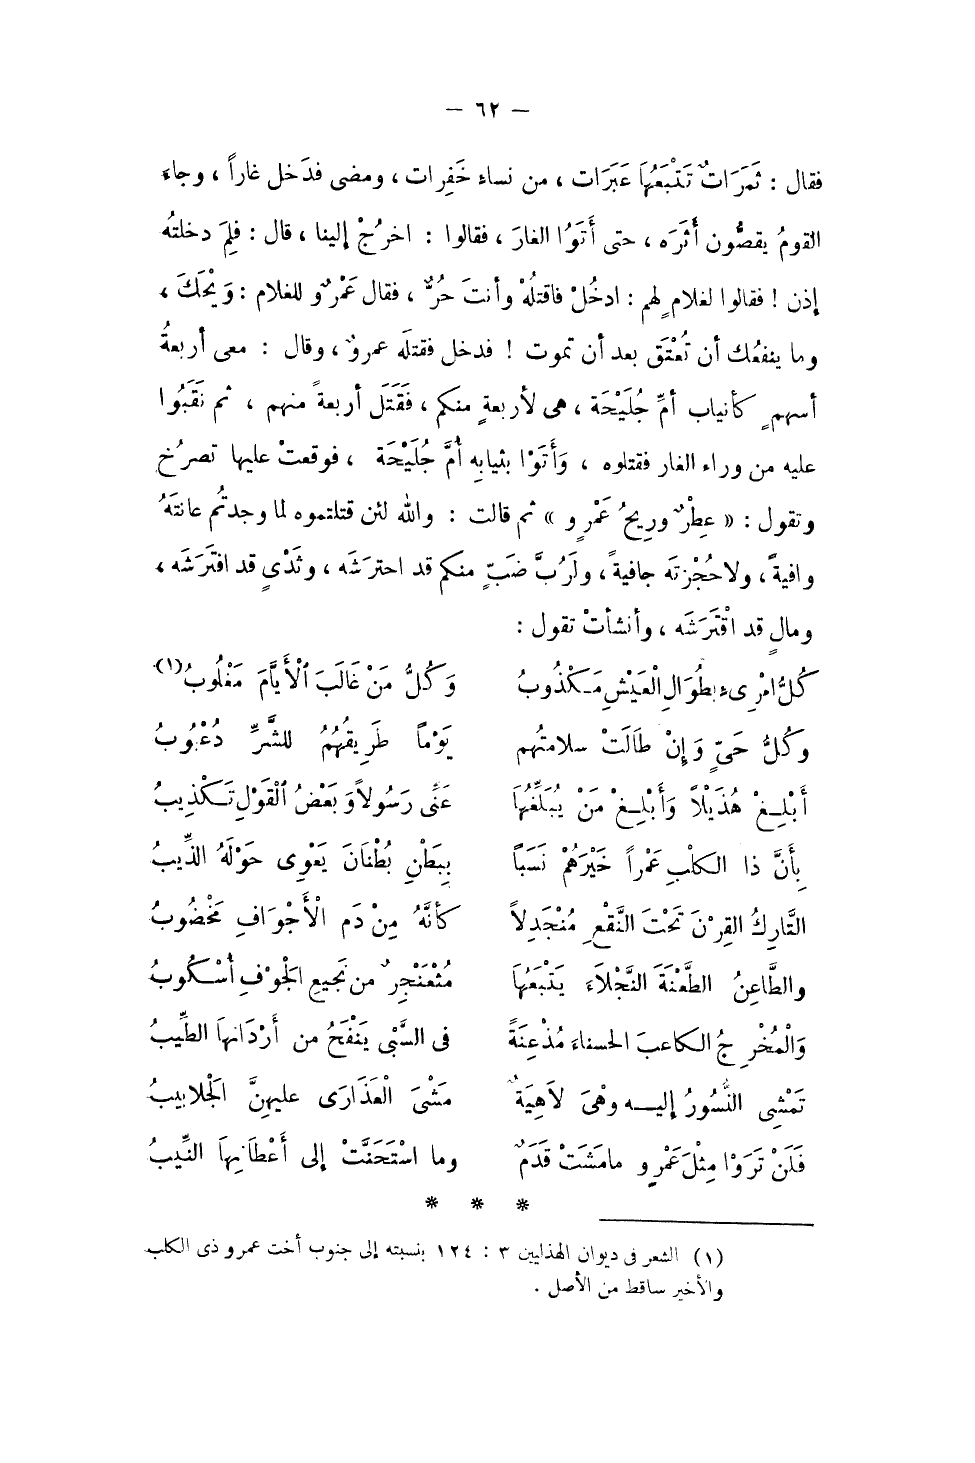 — ٦٢ —
فقال : ثَمَرَاتٌ تَتْبَعُهَا عَبَرَات ، من نساء خَفِرات ، ومضى فدَخل غاراً ، وجاء
القومُ يقصُّون أَثَرَه ، حتى أَتَوُا الغارَ ، فقالوا : اخرُجْ إلينا ، قال : فلِمَ دخلتُه
إذن ! فقالوا لغلامٍ لهم : ادخُلْ فاقتلْهُ وأنتَ حُرٌّ ، فقال عَمْرٌو للغلام : وَيْحَكَ ،
وما ينفعُك أن تُعْتَق بعد أن تموت ! فدخل فقتلَه عمروٌ ، وقال : معى أربعةُ
أسهمٍ كأنياب أمِّ جُلَيْحَة ، هى لأربعةٍ منكم ، فَقَتَل أربعةً منهم ، ثم نَقَبُوا
عليه من وراء الغار فقتلوه ، وَأَتَوْا بثيابِه أُمَّ جُلَيْحَة ، فوقعتْ عليها تصرُخ
وتقول : « عِطْرٌ وريحُ عَمْرٍو » ثم قالت : والله لئن قتلتموه لما وجدتُم عانتَهُ
وافيةً ، ولا حُجْزتَه جافيةً ، ولَرُبَّ ضَبٍّ منكم قد احترَشَه ، وثَدْيٍ قد افترَشَه ،
ومالٍ قد اقْتَرَشَه ، وأنشأتْ تقول :
كلُّ امْرِىءٍ بطُوَالِ الْعَيْشِ مَكْذُوبُ وَكُلُّ مَنْ غَالَبَ الْأَيَّامَ مَغْلُوبُ (١)
وكُلُّ حَىٍّ وَإِنْ طَالَتْ سلامتُهم يَوْماً طَرِيقُهُمُ للشَّرِّ دُعْبُوبُ
أَبْلِغْ هُذَيْلاً وَأَبْلِغْ مَنْ يُبَلِّغُهَا عَنِّى رَسُولاً وَبَعْضُ الْقَوْلِ تَكْذِيبُ
بِأَنَّ ذا الكلْبِ عَمْراً خَيْرَهُمْ نَسَباً بِبَطْنِ بُطْنَانَ يَعْوِى حَوْلَهُ الذِّيبُ
التَّارِكُ القِرْنَ تَحْتَ النَّقْعِ مُنْجَدِلاً كأنَّهُ مِنْ دَمِ الْأَجْوَافِ مَخْضُوبُ
والطَّاعِنُ الطَّعْنَةَ النَّجْلَاءَ يَتْبَعُهَا مُثْعَنْجِرٌ من نَجيعِ الجْوْفِ أُسْكُوبُ
وَالْمُخْرِجُ الكاعبَ الحسناءَ مُذْعِنَةً فى السَّبْى يَنْفَحُ من أَرْدَانها الطِّيبُ
تَمْشِى النُّسُورُ إليه وهْىَ لَاهِيَةٌ مَشْىَ الْعَذَارَى عليهنَّ الْجَلابيبُ
فَلَنْ تَرَوْا مِثْلَ عَمْرٍو مامَشَتْ قَدَمٌ وما اسْتَحَنَّتْ إلى أَعْطَانِهاَ النِّيبُ
* * *
(١) الشعر فى ديوان الهذليين ٣ : ١٢٤ بنسبته إلى جنوب أخت عمرو ذى الكلب
والأخير ساقط من الأصل .